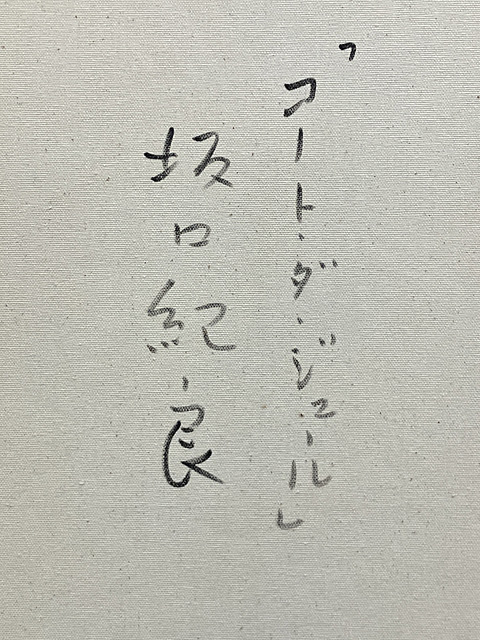 「コート・ダ・ジュール」
坂口紀良